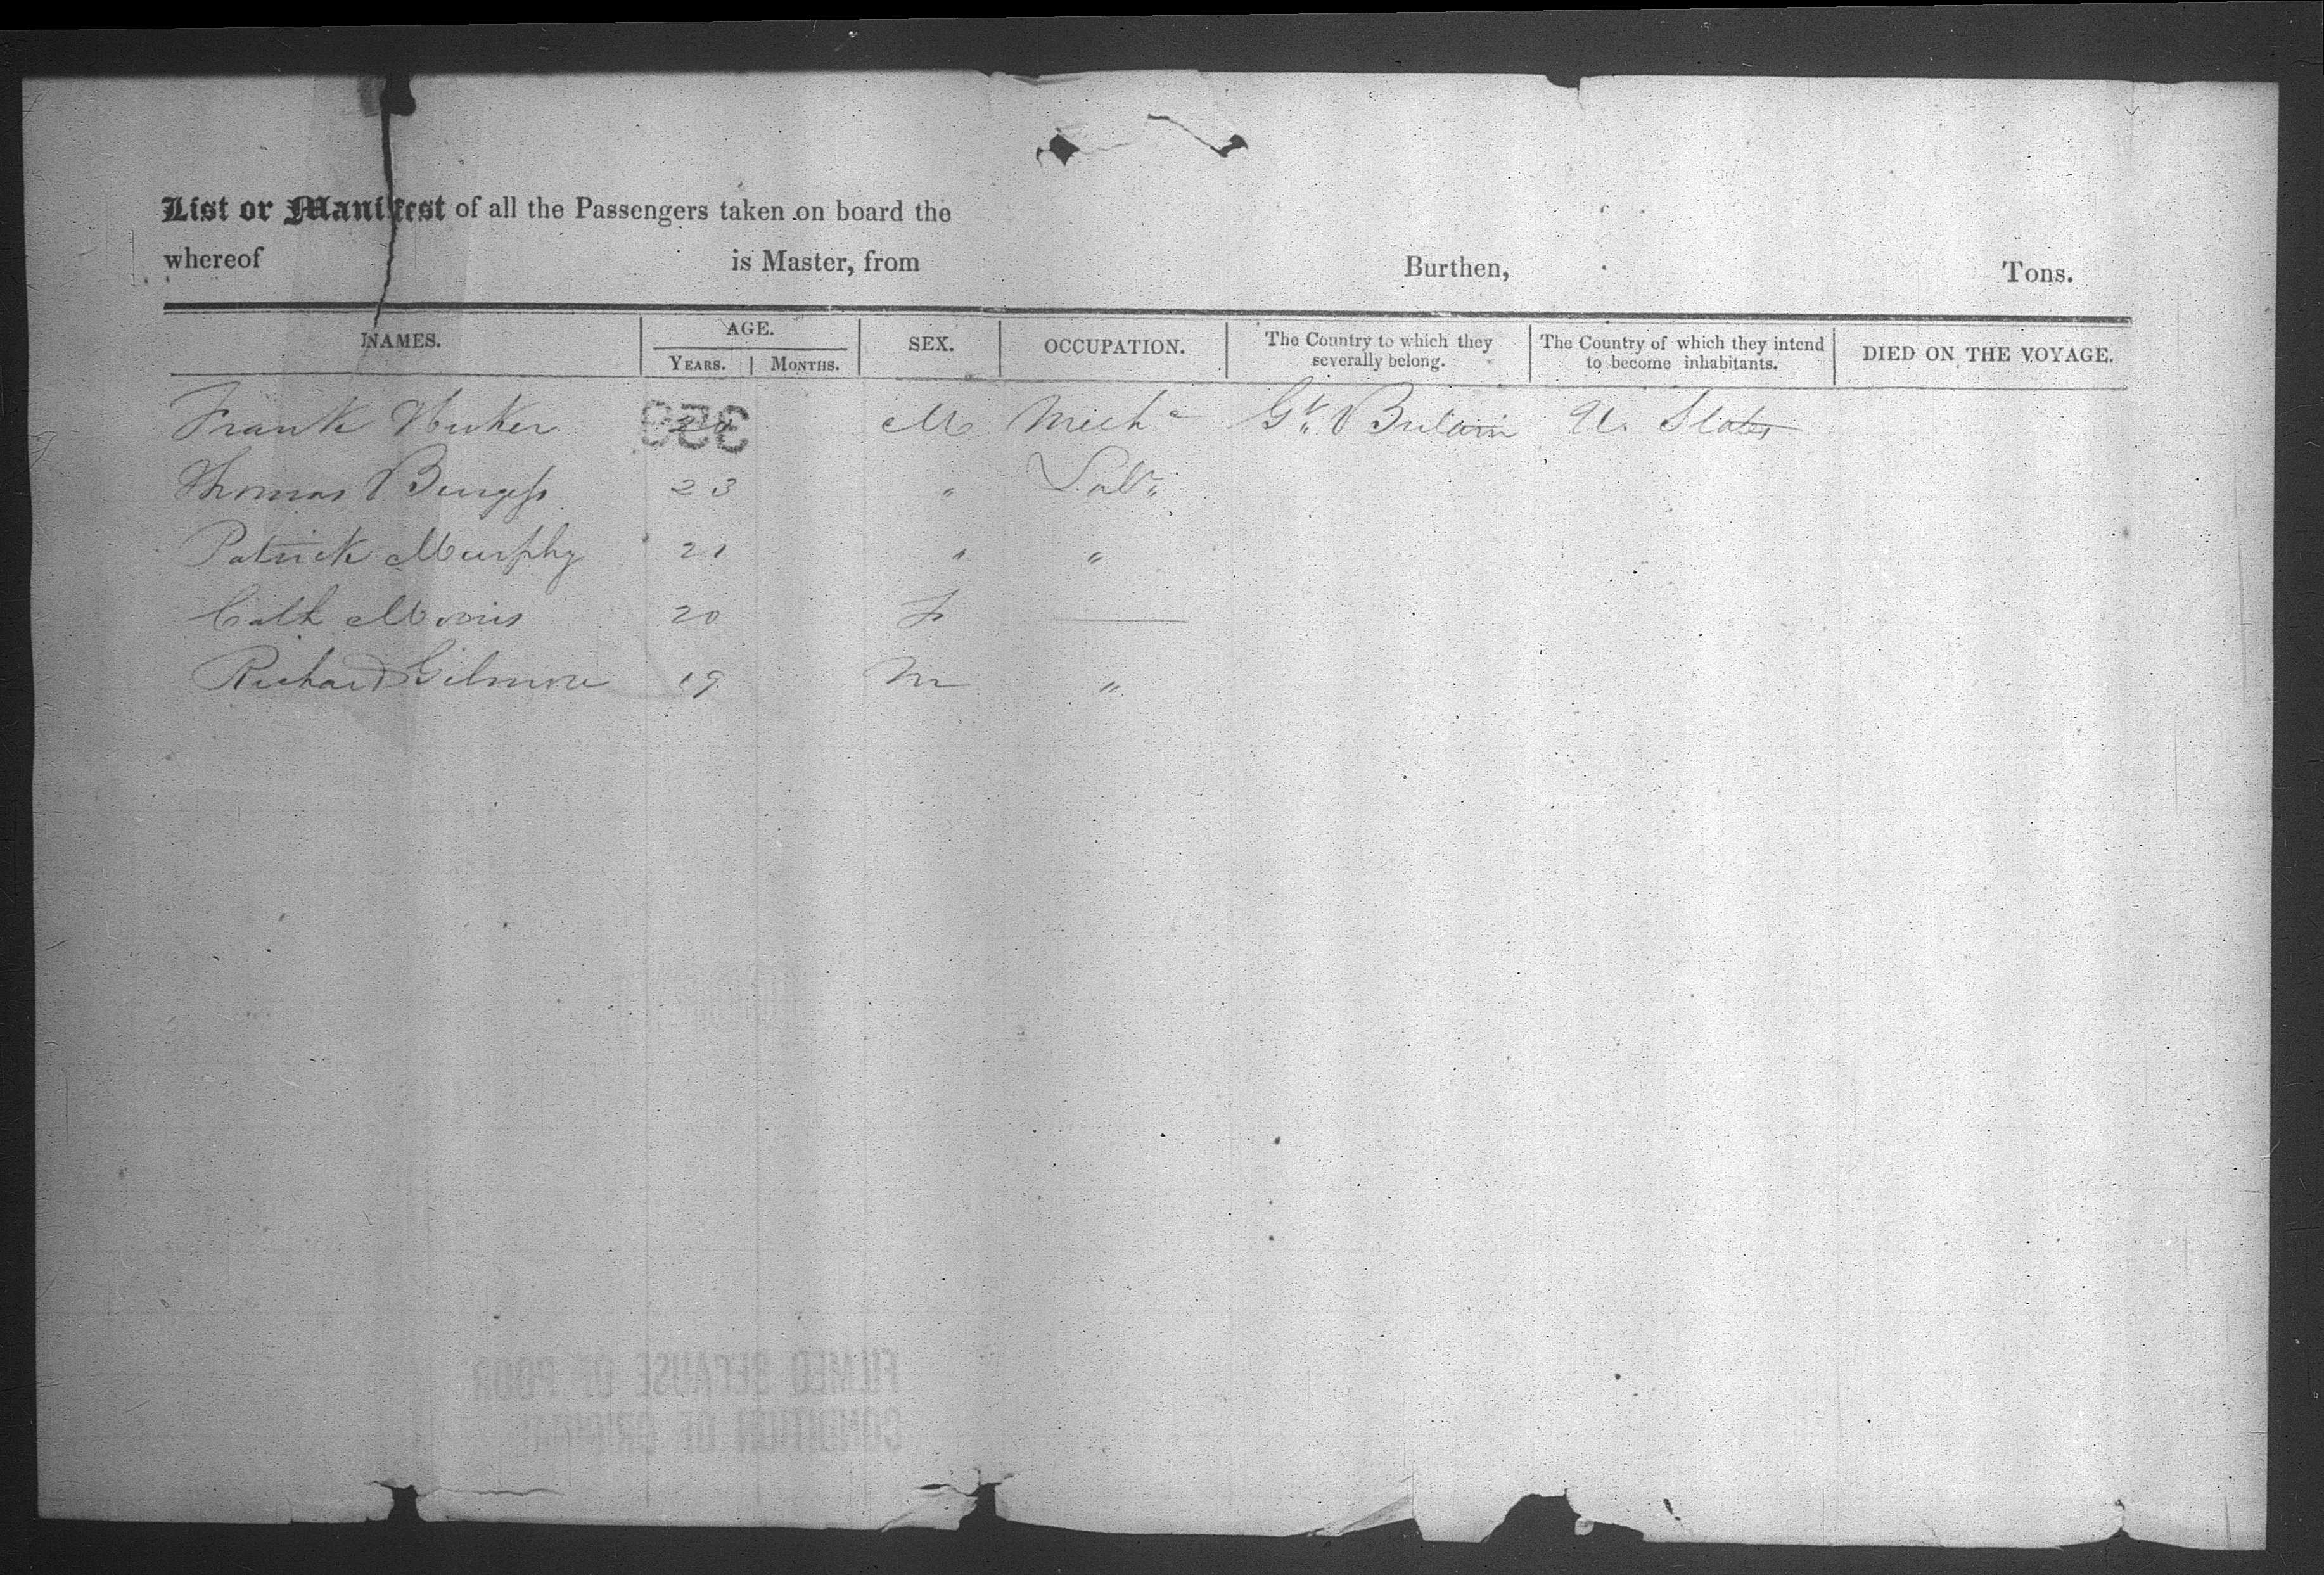 List or Manifest of all the Passengers taken on board the
whereof is Master, from Burthen, Tons.
NAMES. AGE. YEARS. MONTHS. SEX. OCCUPATION. The Country to which they severally belong. The Country of which they intend to become inhabitants. DIED ON THE VOYAGE.
Frank M Mech Gt Britain U. States
Thomas Burgess 23 " Labr
Patrick Murphy 21 " "
Cath Morris 20 F
Richard Gilmore 19 M "
FILMED BECAUSE OF POOR
CONDITION OF ORIGINAL